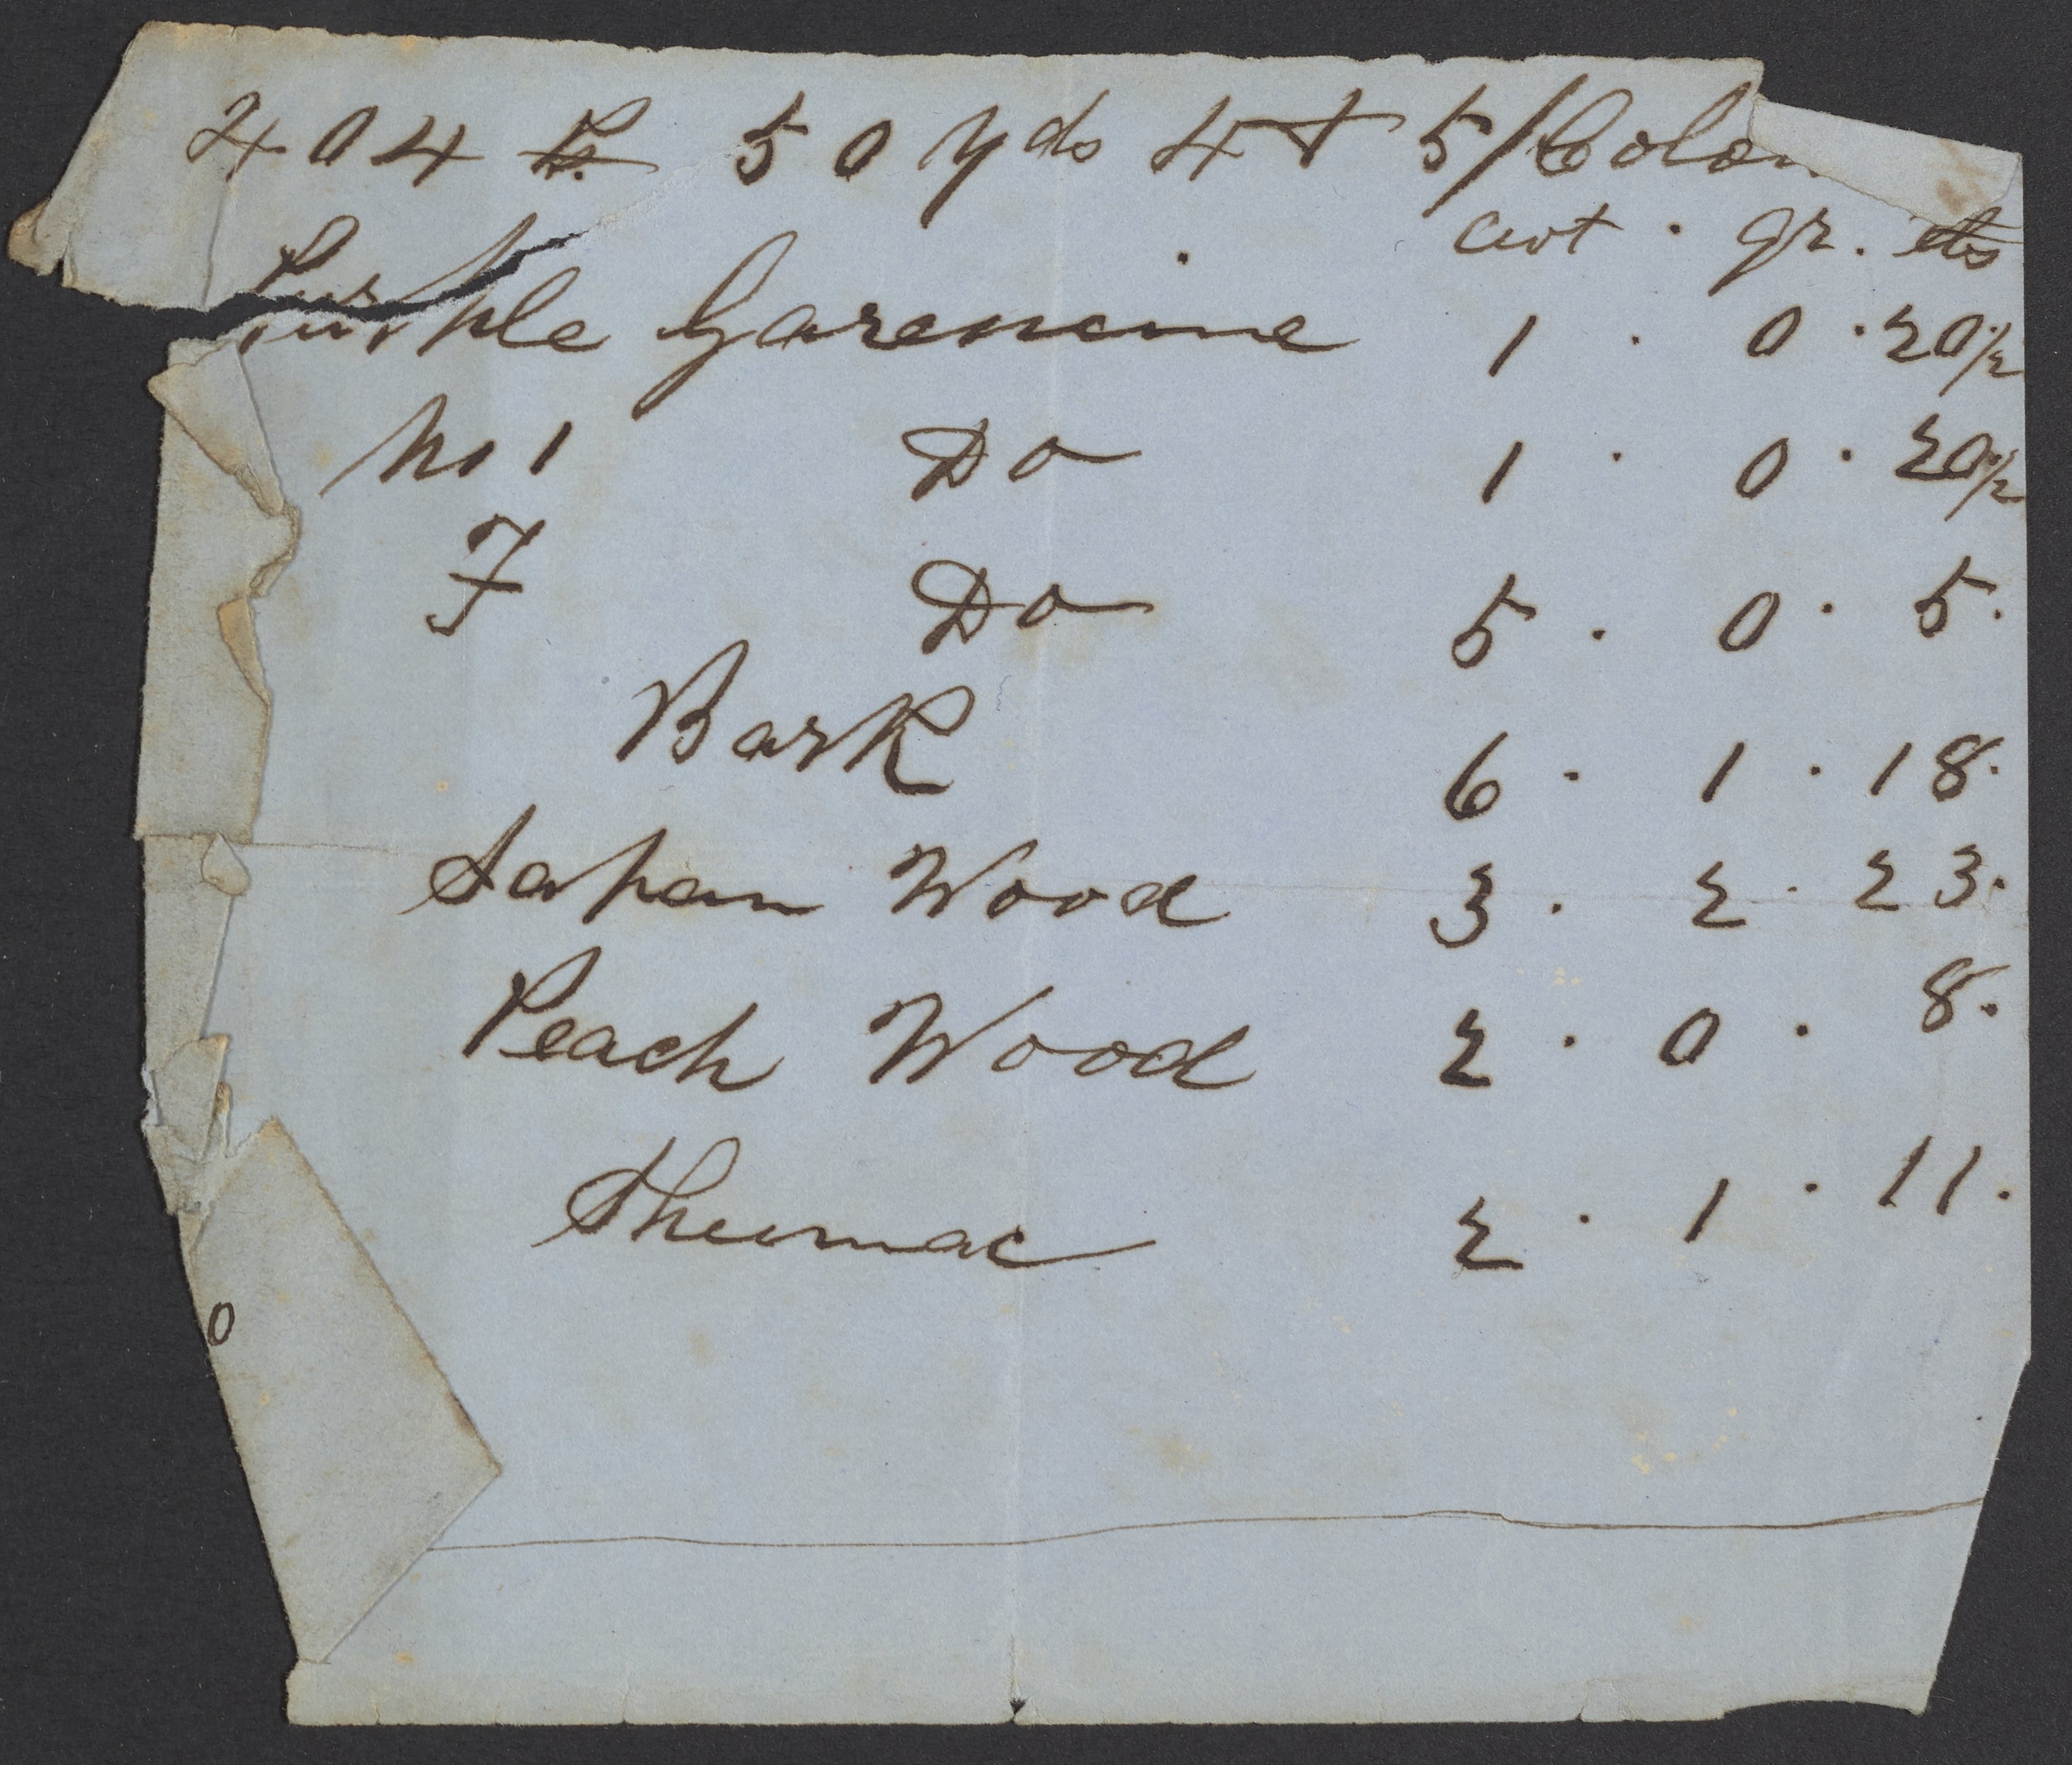 404 P. 50 yds 4 & 5/Color
cwt . qr . lbs
Purple Garencine 1 . 0 . 20 1/2
No 1 Do 1 . 0 . 20 1/2
F Do 5 . 0 . 5.
Bark 6 . 1 . 18.
Sapan Wood 3 . 2 . 23.
Peach Wood 2 . 0 . 8.
Shumac 2 . 1 . 11.
0